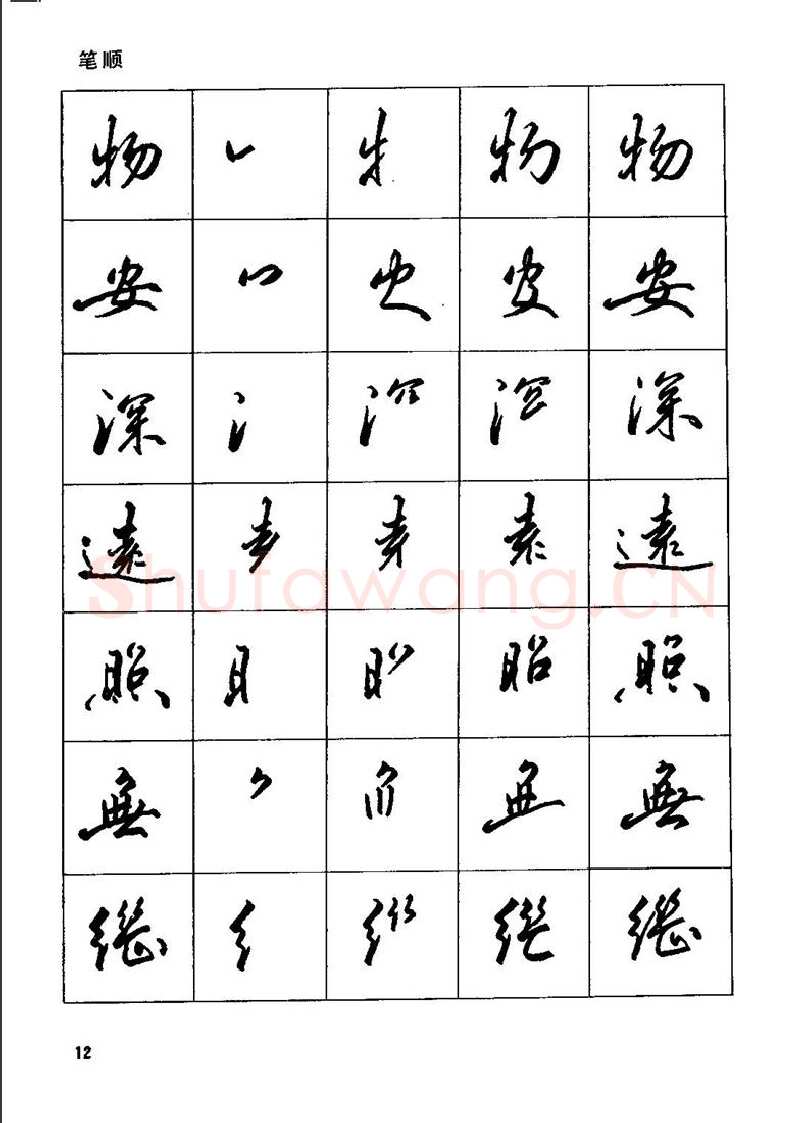 笔顺
物 物 物
安 安
深 氵 深
遠 遠
照 昭 照
無 無
Shufawang.CN
12